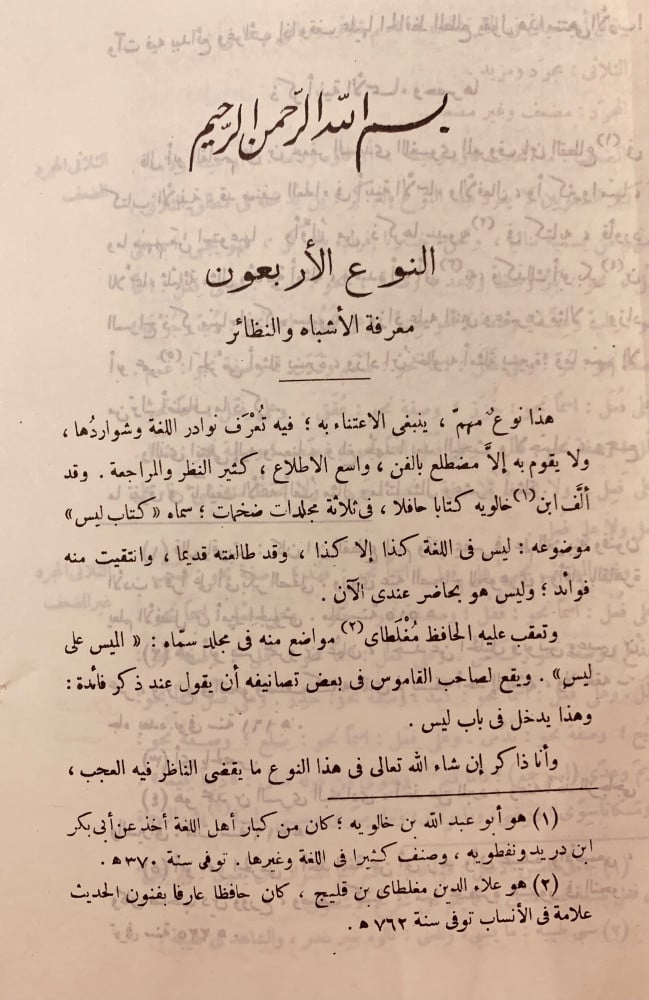 بسم الله الرّحمن الرّحيم
النوع الأربعون
معرفة الأشباه والنظائر
هذا نوعٌ مهمّ ، ينبغى الاعتناء به ؛ فيه تُعْرَف نوادر اللغة وشواردُها ،
ولا يقوم به إلاَّ مضطلع بالفن ، واسع الاطلاع ، كثير النظر والمراجعة . وقد
ألَّف ابن(١) خالويه كتابا حافلا ، فى ثلاثة مجلدات ضخمات ؛ سماه «كتاب ليس»
موضوعه : ليس فى اللغة كذا إلا كذا ، وقد طالعته قديما ، وانتقيت منه
فوائد ؛ وليس هو بحاضر عندى الآن .
وتعقب عليه الحافظ مُغْلَطاى(٢) مواضع منه فى مجلد سمّاه : « الميس على
ليس» . ويقع لصاحب القاموس فى بعض تصانيفه أن يقول عند ذكر فائدة :
وهذا يدخل فى باب ليس .
وأنا ذاكر إن شاء الله تعالى فى هذا النوع ما يقضى الناظر فيه العجب ،
(١) هو أبو عبد الله بن خالويه ؛ كان من كبار أهل اللغة أخذ عن أبى بكر
ابن دريد ونفطويه ، وصنف كثيرا فى اللغة وغيرها . توفى سنة ٣٧٠ ه .
(٢) هو علاء الدين مغلطاى بن قليج ، كان حافظا عارفا بفنون الحديث
علامة فى الأنساب توفى سنة ٧٦٢ ه .